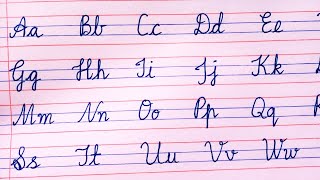 Aa Bb Cc Dd Ee
Gg Hh Ii Jj Kk
Mm Nn Oo Pp Qq
Ss Tt Uu Vv Ww